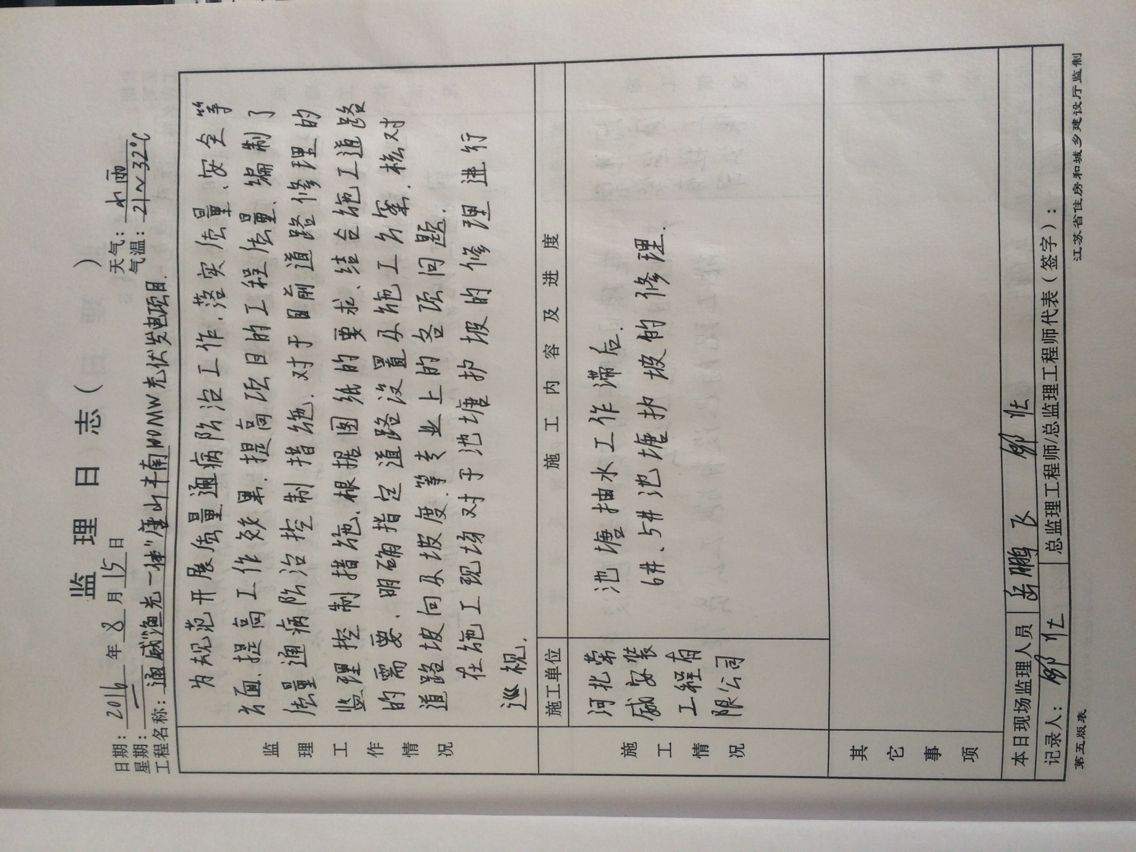 监 理 日 志 ( )
日期：2016 年 8 月 15 日 天气：小雨
星期：一 气温：21~32℃
工程名称：通威"渔光一体"唐山丰南10MW光伏发电项目
监理工作情况
为规范开展质量通病防治工作,落实质量、安全等
方面,提高工作效果,提高项目的工程质量、编制了
质量通病防治控制措施.对于目前道路修理的
监理控制措施.根据图纸的要求、结合施工道路
的需要.明确指定道路设置及施工方案.检对
道路坡向及坡度.等专业上的各项问题.
在施工现场对于池塘护坡的修理进行
巡视.
施工情况
施工单位 施 工 内 容 及 进 度
河北常
威安装
工程有
限公司
池塘抽水工作滞后.
6#、5#池塘护坡的修理.
其它事项
本日现场监理人员 岳鹏飞
记录人： 总监理工程师/总监理工程师代表（签字）：
第五版表 江苏省住房和城乡建设厅监制